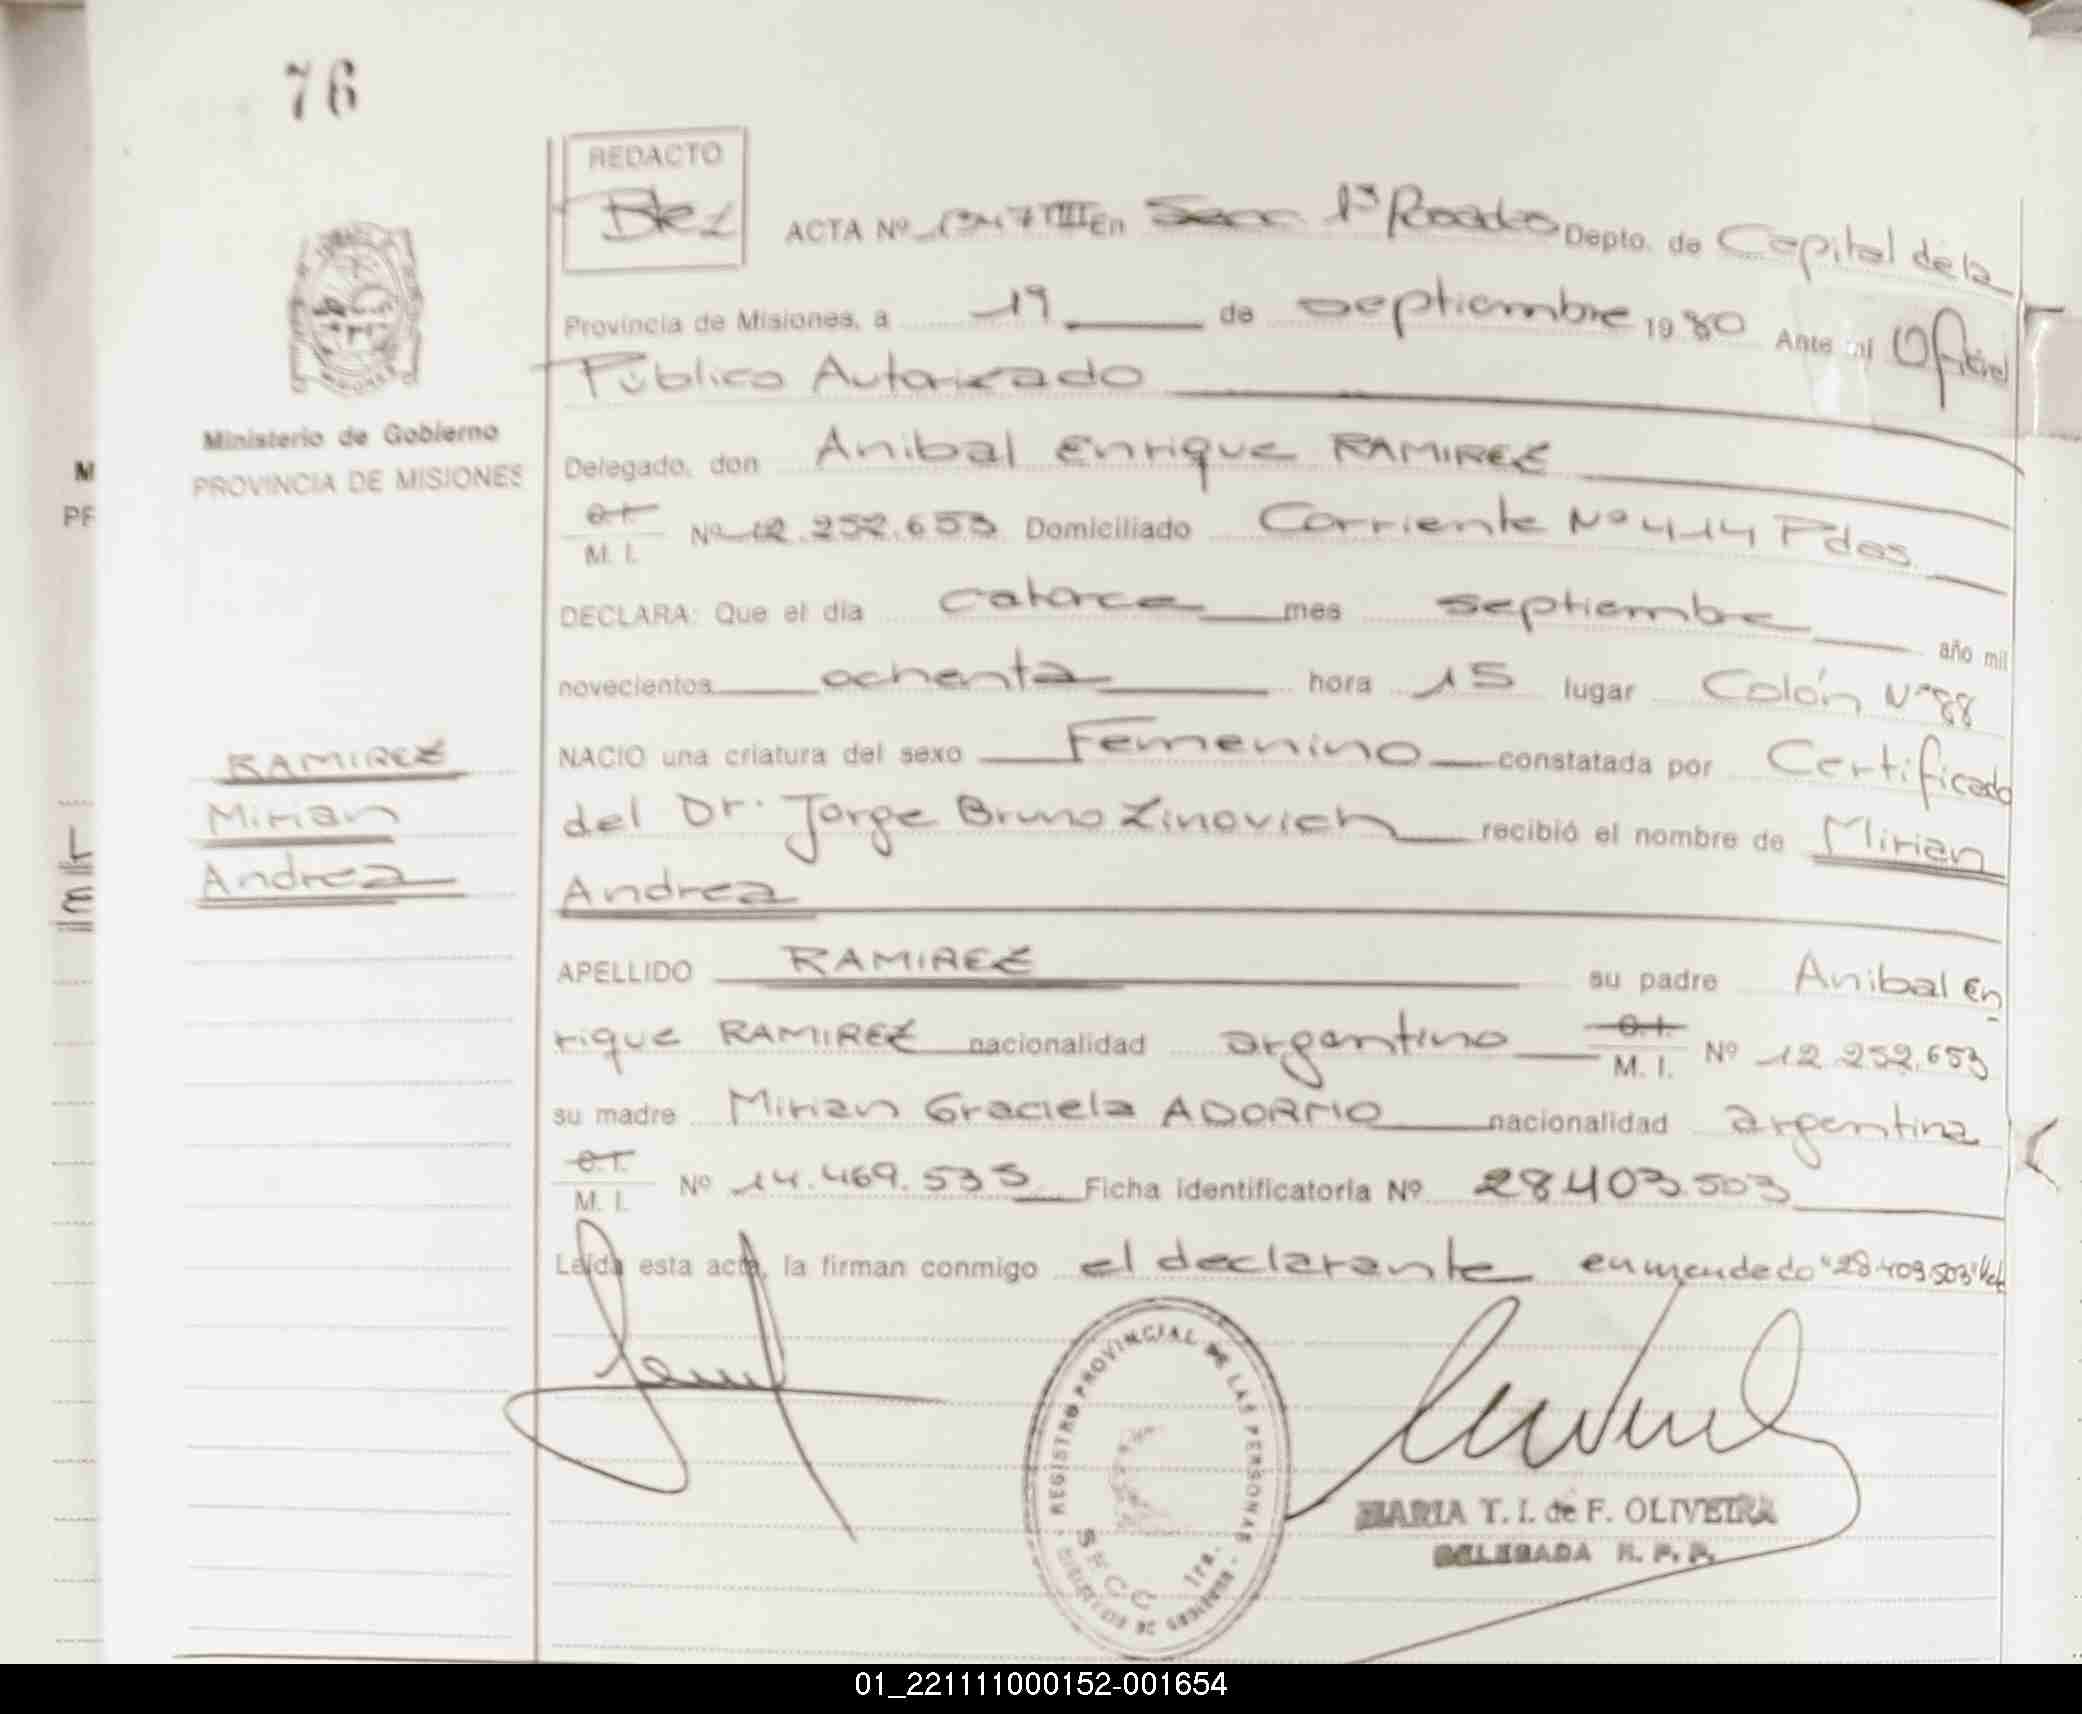 76
REDACTO
ACTA Nº En Secc 1ª Posadas Depto. de Capital de la
Provincia de Misiones, a 19 de septiembre 1980 Ante mi Oficial
Público Autorizado
Ministerio de Gobierno
PROVINCIA DE MISIONES
Delegado, don Anibal Enrique RAMIREZ
O.I. M. I. Nº 12.252.653 Domiciliado Corriente Nº 414 Pdas
DECLARA: Que el día catorce mes septiembre año mil
novecientos ochenta hora 15 lugar Colón Nº 88
NACIO una criatura del sexo Femenino constatada por Certificado
del Dr. Jorge Bruno Zinovich recibió el nombre de Mirian
Andrea
RAMIREZ
Mirian
Andrea
APELLIDO RAMIREZ su padre Anibal En
rique RAMIREZ nacionalidad argentino M. I. Nº 12.252.653
su madre Mirian Graciela ADORNO nacionalidad argentina
M. I. Nº 14.469.535 Ficha identificatoria Nº 28.403.503
Leída esta acta, la firman conmigo el declarante enmendado "28.403.503" Vale
REGISTRO PROVINCIAL DE LAS PERSONAS
SECC 1ra.
MARIA T. I. de F. OLIVEIRA
DELEGADA R. P. P.
01_221111000152-001654